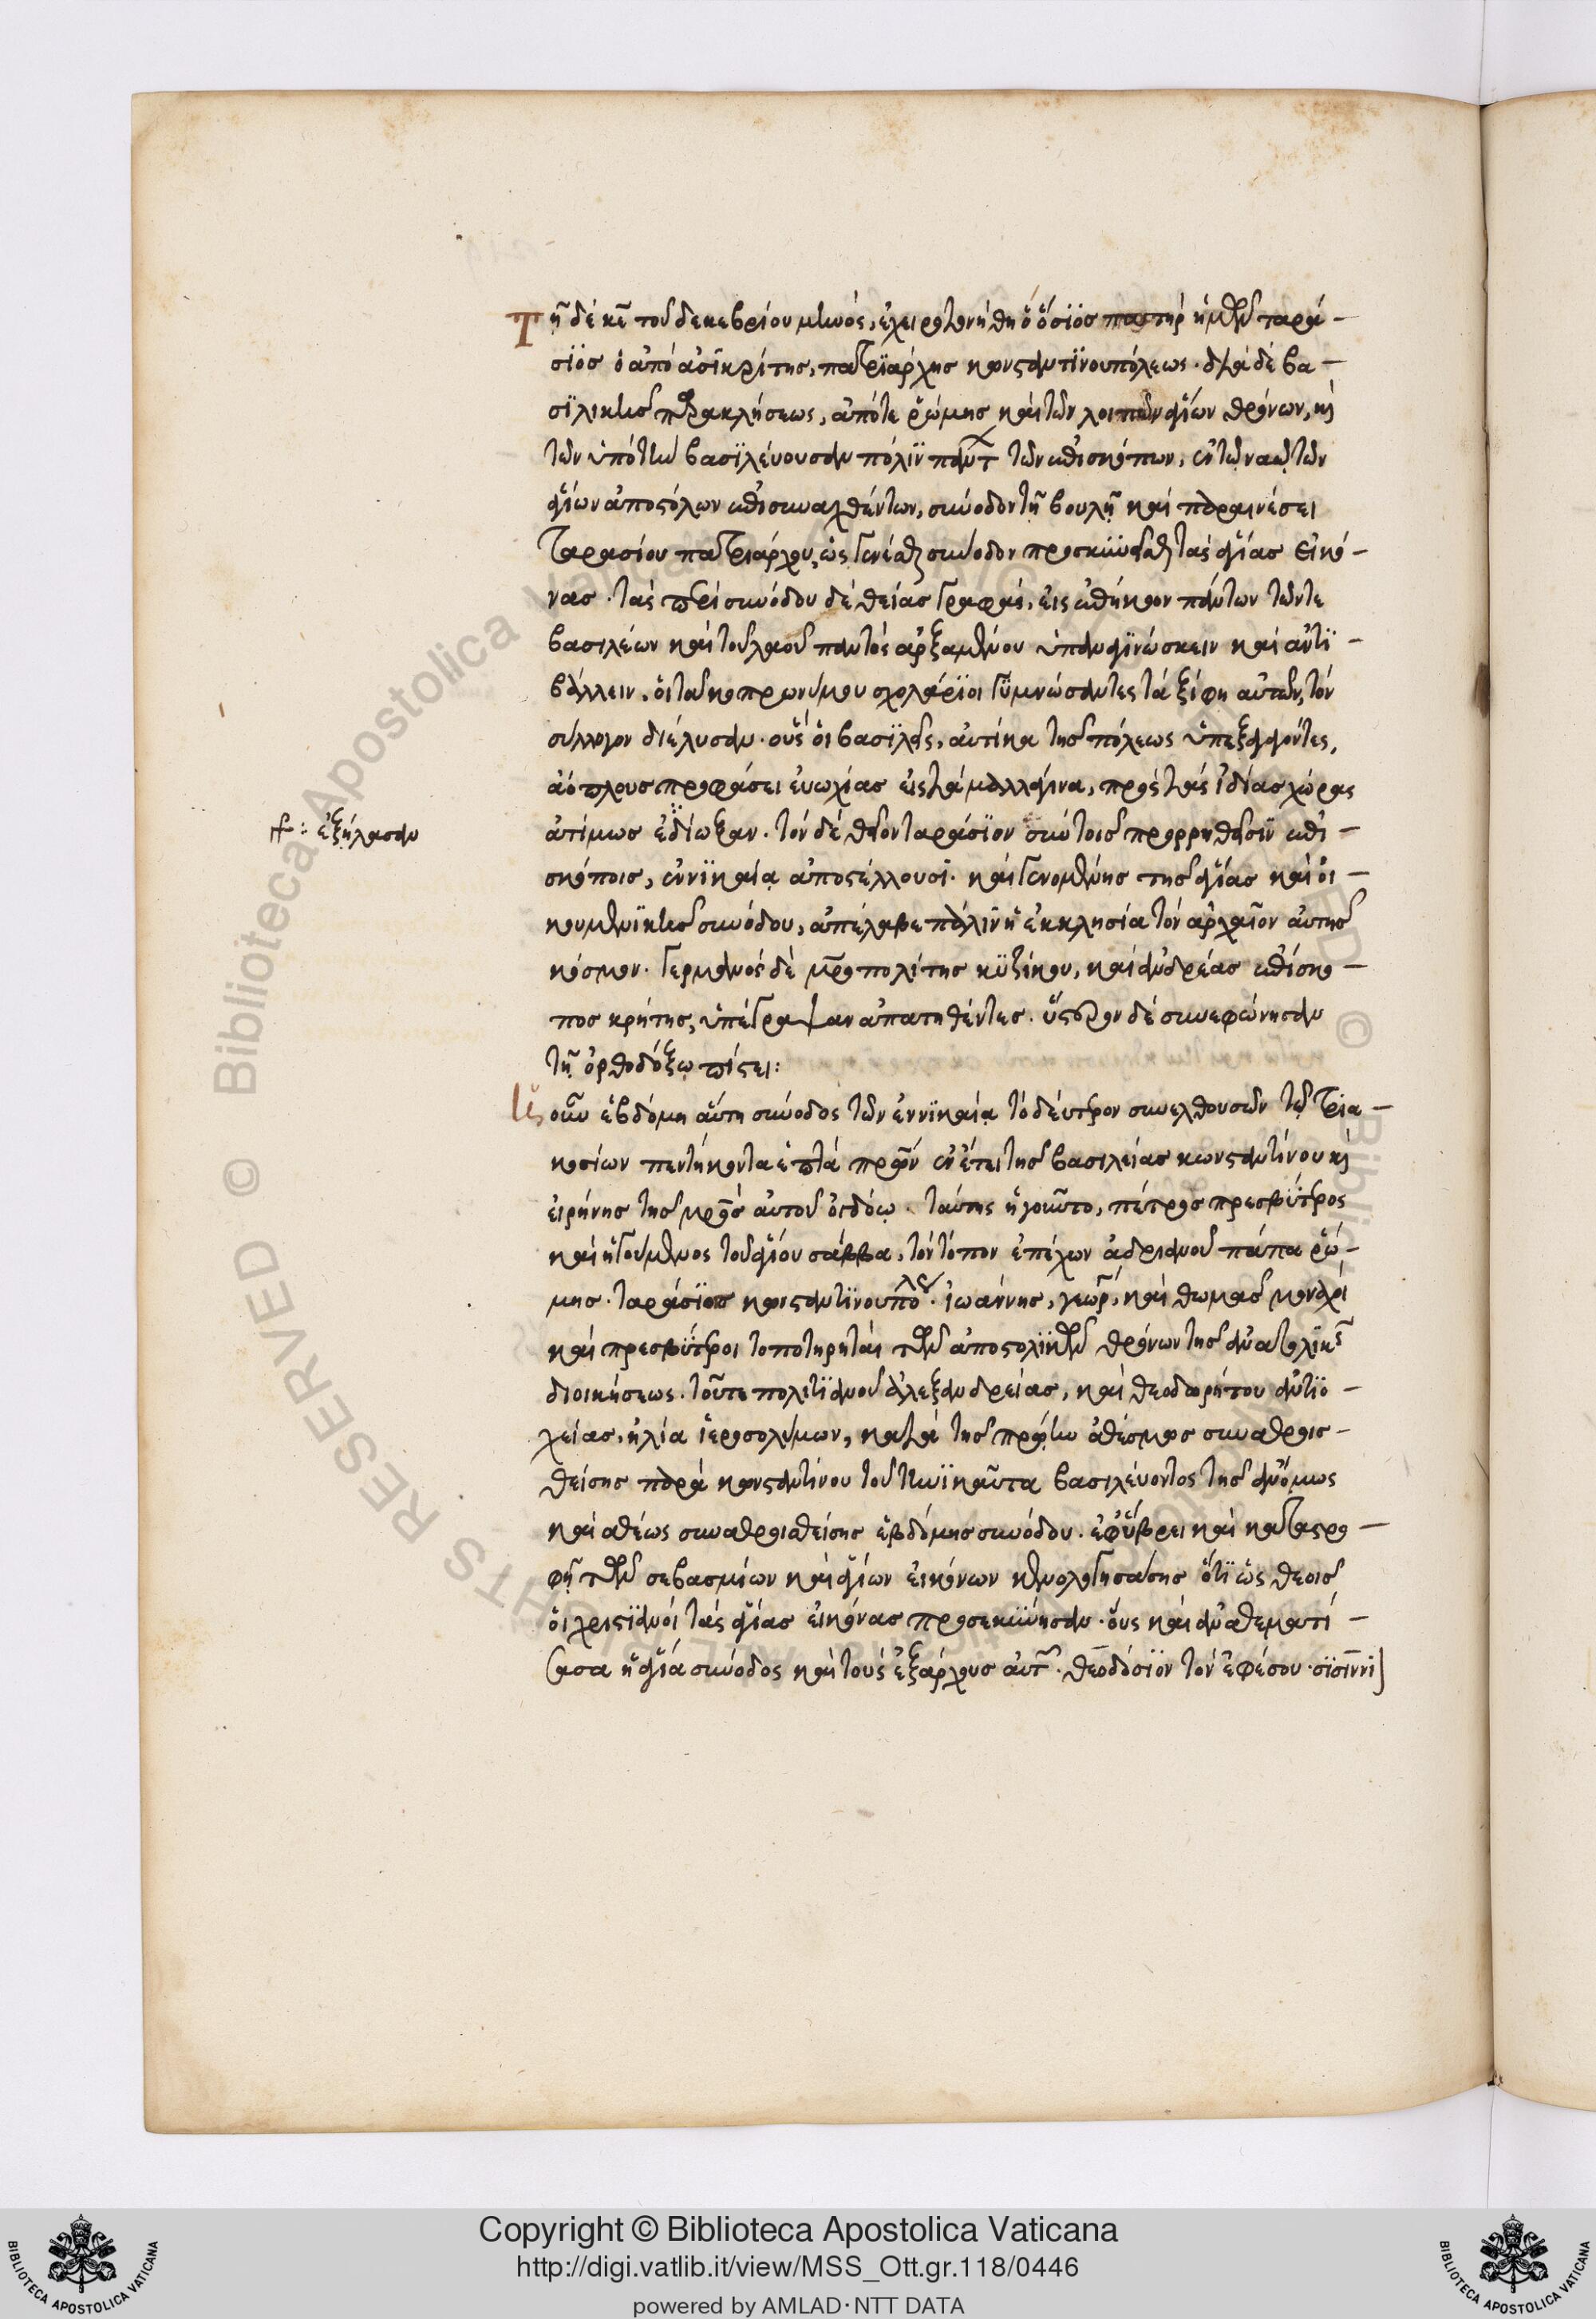 Τῆ δὲ κε τοῦ δεκεβρίου μηνός, ἐχειροτονήθη ὁ ὅσϊος πατὴρ ἡμῶν ταρά-
σϊος ὁ ἀπὸ ἀσϊκρίτης, πατρϊάρχης κωνσταντϊνουπόλεως. διὰ δὲ βα-
σϊλικῆς παρακλήσεως, ἀπό τε ῥώμης καὶ τῶν λοιπῶν ἁγίων θρόνων, καὶ
τῶν ὑπὸ τὴν βασϊλεύουσαν πόλϊν πάντ τῶν ἐπισκόπων, ἐν τῷ ναῷ τῶν
ἁγίων ἀποστόλων ἐπισυναχθέντων, σύνοδον τῇ βουλῇ καὶ παραινέσει
Ταρασίου πατριάρχου, ὡς γενέσθαι σύνοδον προσκϋνεῖσθαι τὰς ἁγίας εἰκό-
νας. τὰς περὶ συνόδου δὲ θείας γραφάς, εἰς ἐπήκοον πάντων τῶν τε
βασιλέων καὶ τοῦ λαοῦ παντὸς ἀρξαμένου ὑπαναγϊνώσκειν καὶ ἀντϊ-
βάλλειν. οἱ τοῦ κοπρωνύμου σχολάρϊοι γϋμνώσαντες τὰ ξίφη αὐτῶν, τὸν
σύλλογον διέλυσαν. οὓς οἱ βασϊλεῖς, αὐτίκα τῆς πόλεως ὑπεξαγαγόντες,
ἀόπλους προφάσει εὐωχίας εἰς τὰ μαλλάγινα, πρὸς τὰς ἰδίας χώρας
ἀτίμως ἐδίωξαν. τὸν δὲ θεῖον ταράσϊον σὺν τοῖς προρρηθεῖσϊν ἐπι-
: ἐξήλασαν
σκόποις, ἐν νϊκαίᾳ ἀποστέλλουσϊ. καὶ γενομένης τῆς ἁγίας καὶ οἰ-
κουμενϊκῆς συνόδου, ἀπέλαβε πάλϊν ἡ ἐκκλησία τὸν ἀρχαῖον αὐτῆς
κόσμον. Γερμανὸς δὲ μροπολίτης κϋζίκου, καὶ ἀνδρέας ἐπίσκο-
πος κρήτης, ὑπέγραψαν ἀπατηθέντες. ὕστερον δὲ συνεφώνησαν
τῇ ὀρθοδόξῳ πίστει:
Ἔστιν οὖν ἑβδόμη αὕτη σύνοδος τῶν ἐν νϊκαίᾳ τὸ δεύτερον συνελθουσῶν τῶν τρια-
κοσίων πεντήκοντα ἑπτὰ πρων ἐν ἔτει τῆς βασιλείας κωνσταντίνου καὶ
εἰρήνης τῆς μρος αὐτοῦ ὀγδόῳ. ταύτης ἡγοῦντο, πέτρος πρεσβύτερος
καὶ ἡγούμενος τοῦ ἁγίου σάββα, τὸν τόπον ἐπέχων ἀδριανοῦ πάπα ῥώ-
μης. ταράσϊος κωνσταντϊνουπόλε. ἰωάννης, γεωρ, καὶ θωμᾶς μοναχοὶ
καὶ πρεσβύτεροι τοποτηρηταὶ τῶν ἀποστολϊκῶν θρόνων τῆς ἀνατολϊκῆς
διοικήσεως. τοῦτε πολιτϊανοῦ ἀλεξανδρείας, καὶ θεοδωρήτου ἀντϊο-
χείας, ἠλία ἱεροσολύμων, κατὰ τῆς πρώην ἀθέσμως συναθροισ-
θείσης παρὰ κωνσταντίνου τοῦ τηνϊκαῦτα βασιλεύοντος τῆς ἀνόμως
καὶ ἀθέως συναθροισθείσης ἑβδόμης συνόδου. ἐφ' ὕβρει καὶ καταστρο-
φῇ τῶν σεβασμίων καὶ ἁγίων εἰκόνων κενολογησάσης ὅτϊ ὡς θεοῖς
οἱ χριστϊανοὶ τὰς ἁγίας εἰκόνας προσεκϋνησαν. οὓς καὶ ἀναθεματί-
σασα ἡ ἁγία σύνοδος καὶ τοὺς ἐξάρχους αὐτῆς. θεοδόσϊον τὸν ἐφέσου. σϊσίννι
Copyright © Biblioteca Apostolica Vaticana
http://digi.vatlib.it/view/MSS_Ott.gr.118/0446
powered by AMLAD·NTT DATA